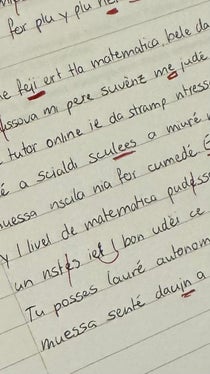 fer plu y plu
feji ert tla matematica. bele da
mi pere suvënz me jüdé
tutor online ie da stramp ntress
a scialdi sculees a muré
muessa nscila nia for cumedé
y l livel de matematica pudëss
un nstës iet l bon udëi ce
Tu posses lauré autonom
muessa senté daujin a